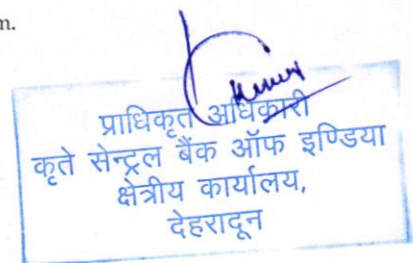 m.
प्राधिकृत अधिकारी
कृते सेन्ट्रल बैंक ऑफ इण्डिया
क्षेत्रीय कार्यालय,
देहरादून